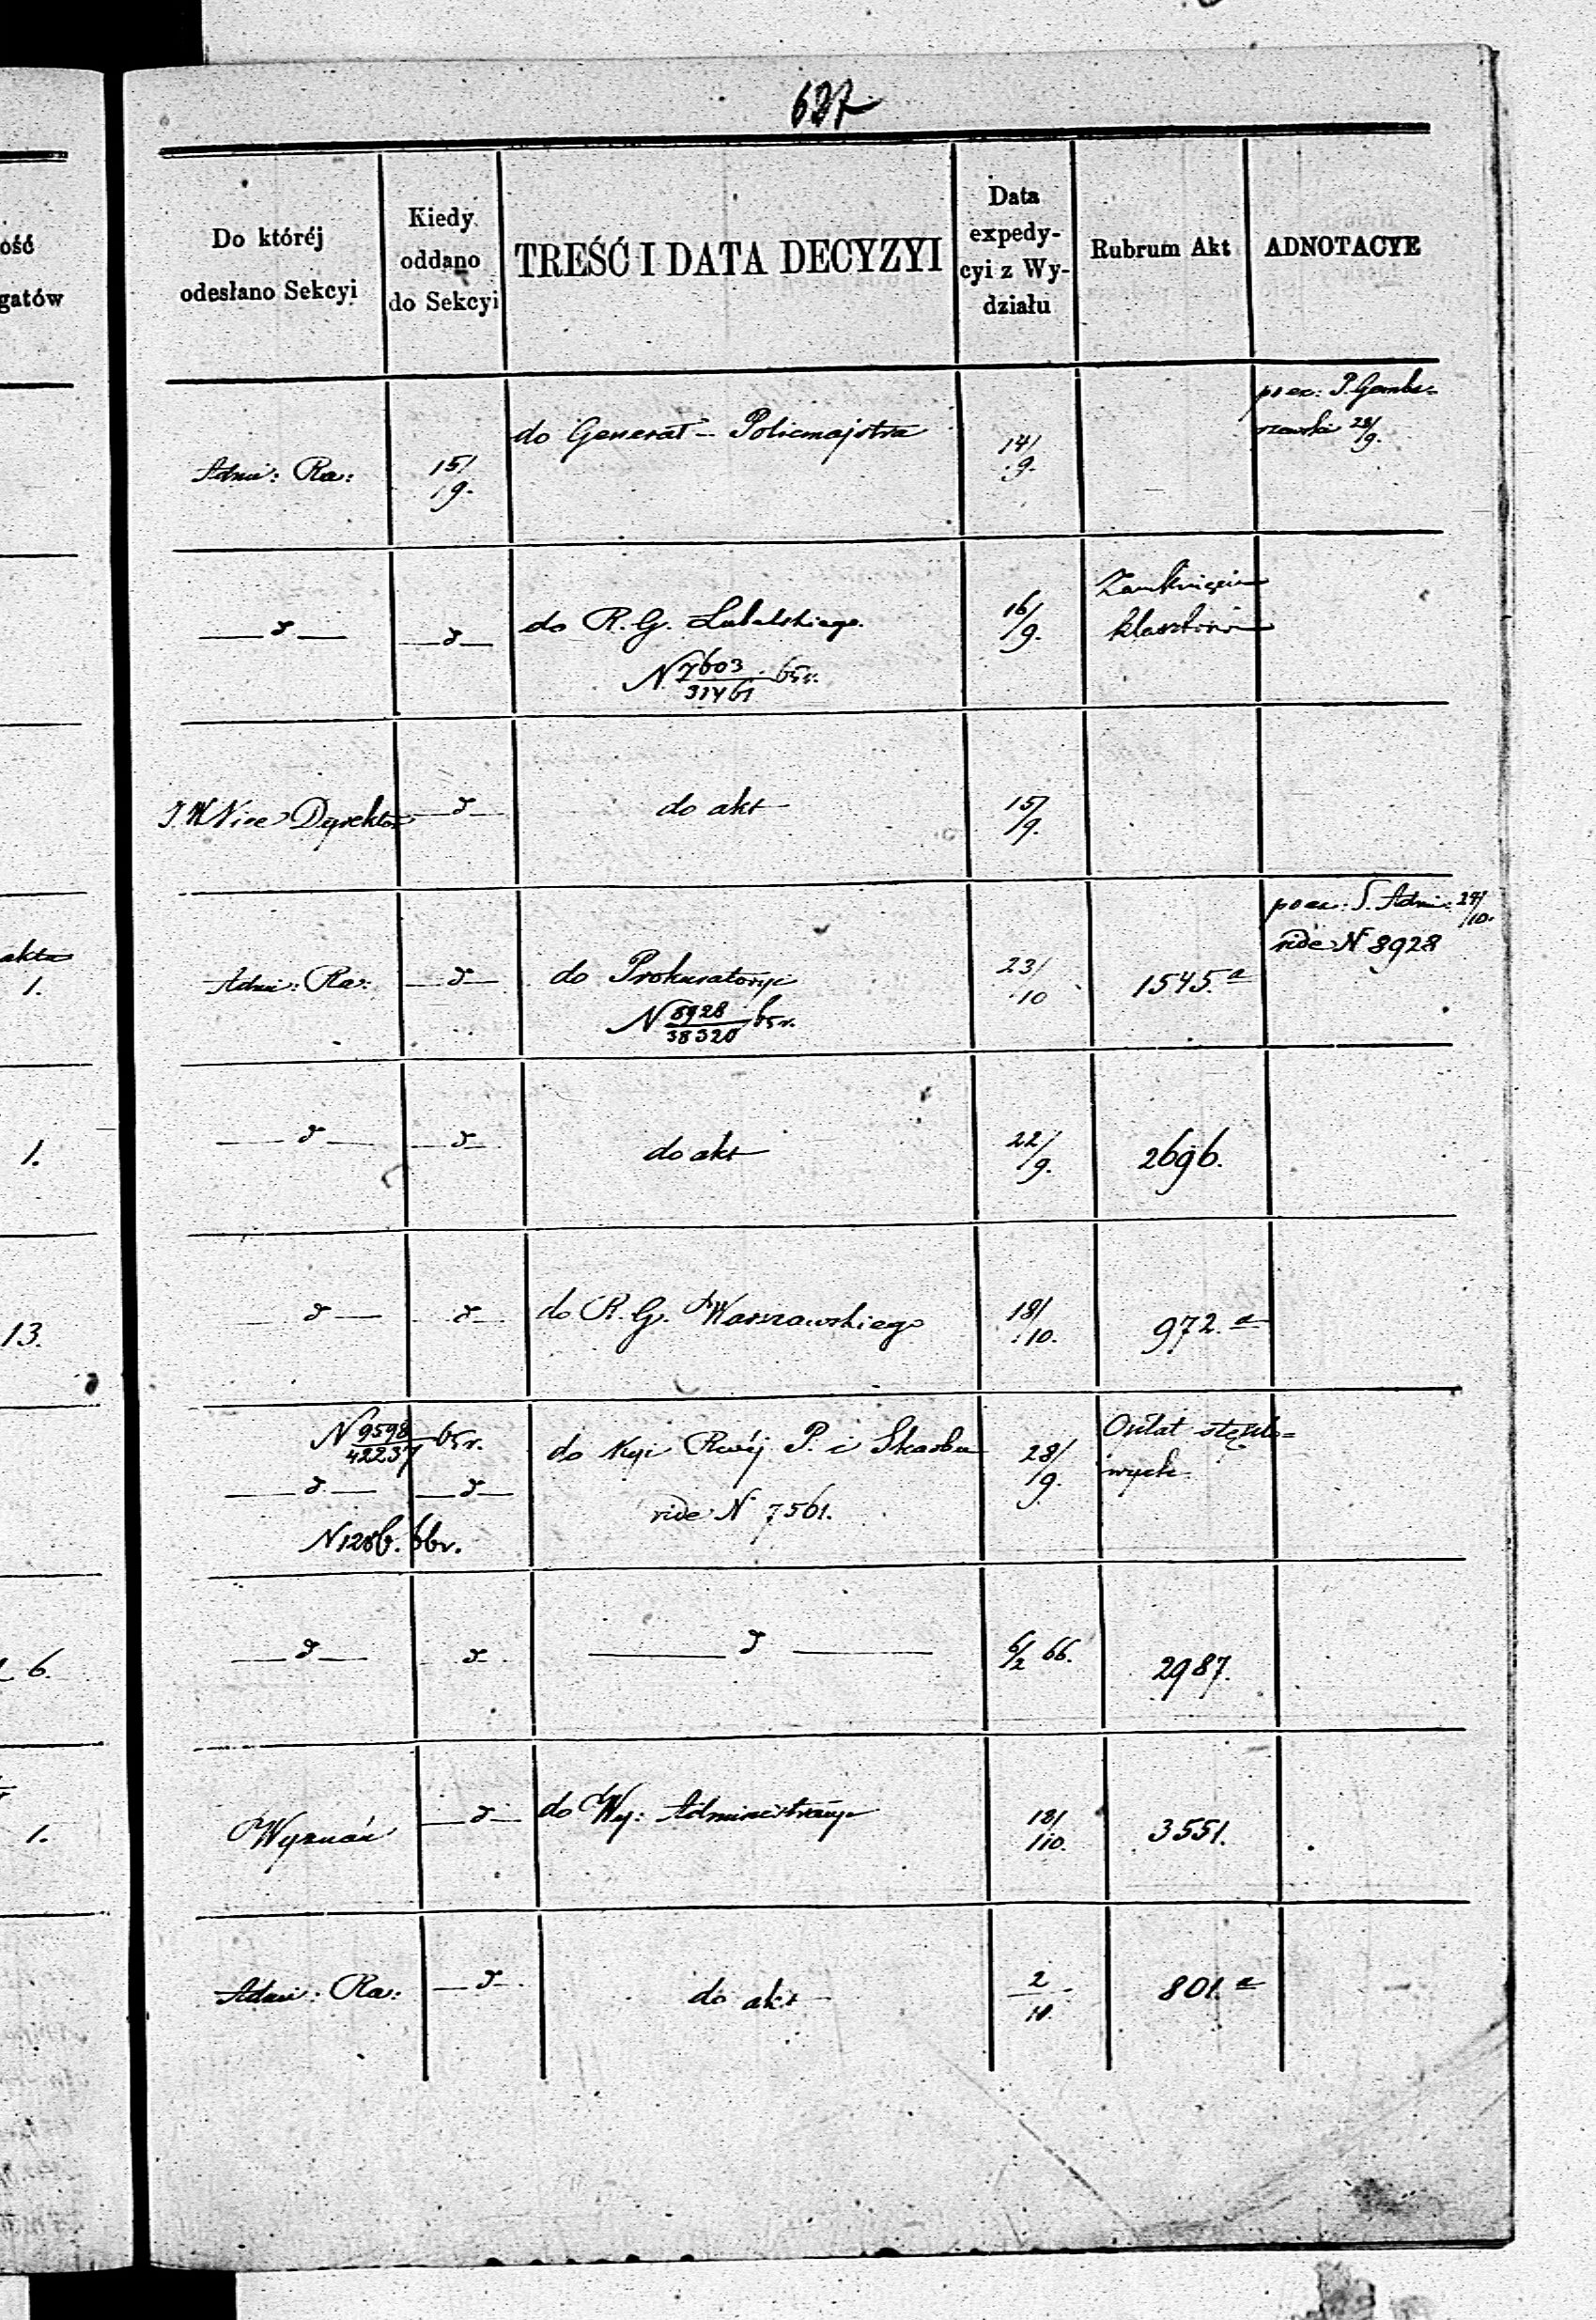 637
Do któréj
odesłano Sekcyi
Kiedy
oddano
do Sekcyi
TREŚĆ I DATA DECYZYI
Data
expedy-
cyi z Wy-
działu
Rubrum Akt
ADNOTACYE
ość
gatów
Adm: Ra:
15/9.
do Generał-Policmajstra
14/9.
po ex: P.
28/9.
— d —
— d —
do R. G. Lubelskiego
N 7603/31461 65 r.
16/9.
Zamknięcie
klasztorów
J. W Vice Dyrektor
— d —
do akt
15/9.
akta
1.
Adm: Ra:
— d —
do Prokuratoryi
N 8928/38320 65 r.
23/10
1545. a
po ex: S. Adm: 24/10.
vide N 8928
1.
— d —
— d —
do akt
22/9.
2696.
13.
— d —
d —
do R. G. Warszawskiego
18/10.
972. a
N 9598/42237 65 r.
— d —
— d —
N 1286. 66 r.
do Kyi Rwéj P. i Skarbu
vide N 7561.
28/9.
Opłat stęplo=
wych
6.
— d —
d —
— d —
6/2 66.
2987.
1.
Wyznań
— d —
do Wy: Administracyi
18/10.
3551.
Adm: Ra:
— d —
do akt
2/10.
801. a